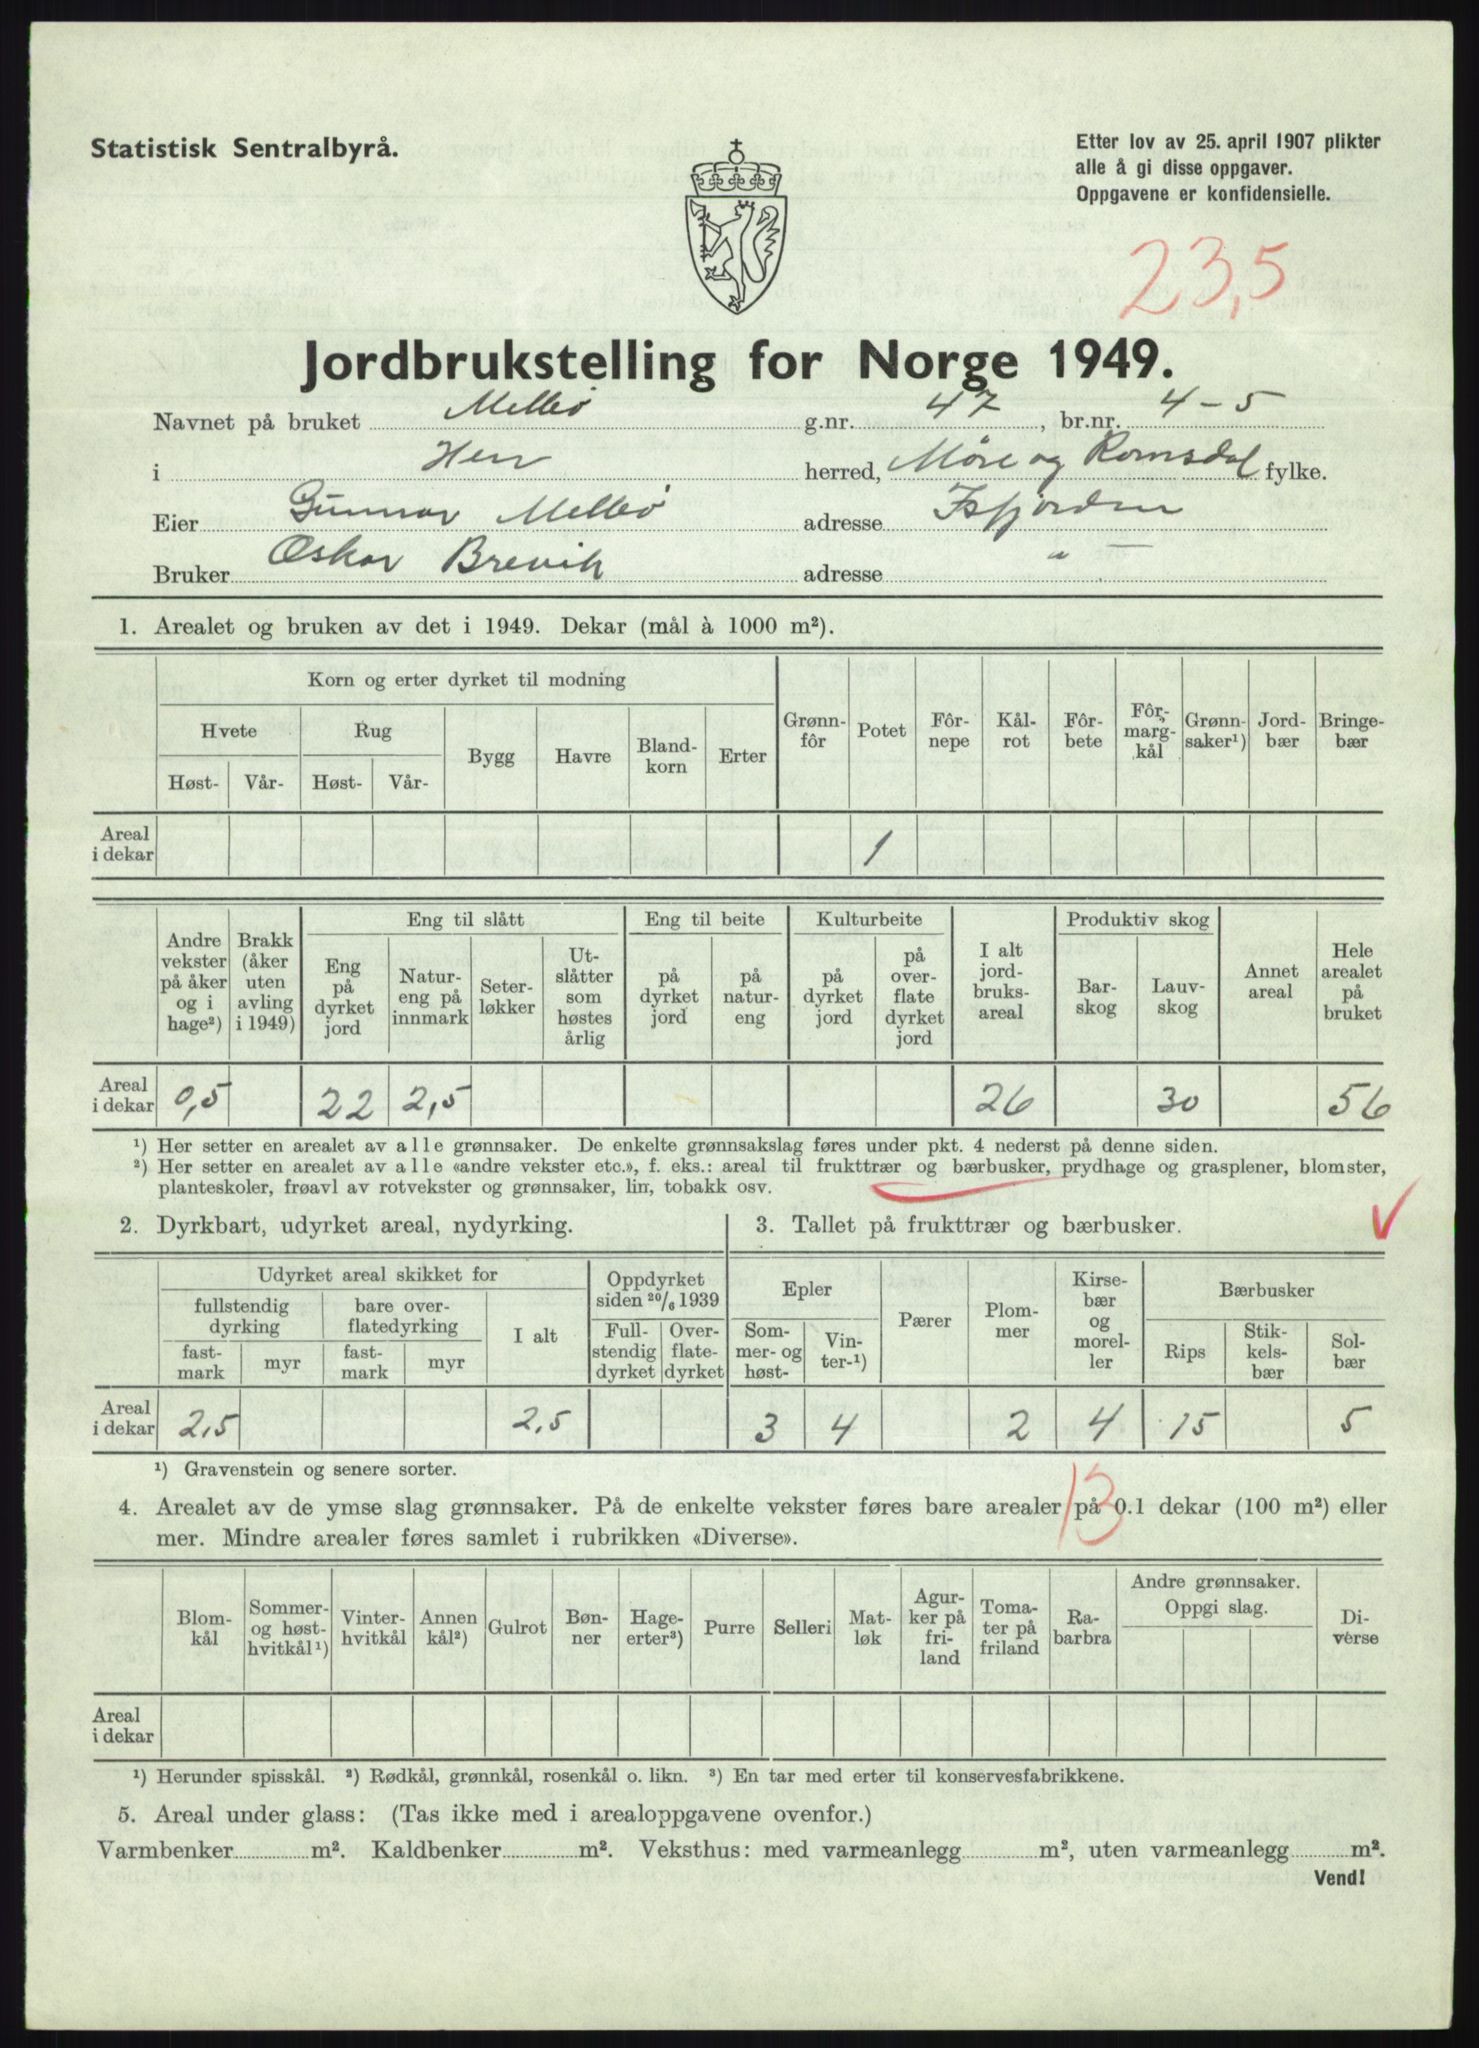 Statistisk Sentralbyrå.
Etter lov av 25. april 1907 plikter
alle å gi disse oppgaver.
Oppgavene er konfidensielle.
23,5
Jordbrukstelling for Norge 1949.
Navnet på bruket Mellbø g.nr. 47, br.nr. 4-5
i Hen herred, Møre og Romsdal fylke.
Eier Gunnar Mellbø adresse Isfjorden
Bruker Oskar Brevik adresse " —
1. Arealet og bruken av det i 1949. Dekar (mål à 1000 m²).
Korn og erter dyrket til modning
Hvete Rug Bygg Havre Bland-korn Erter Grønn-fôr Potet Fôr-nepe Kål-rot Fôr-bete Fôr-marg-kål Grønn-saker¹) Jord-bær Bringe-bær
Høst- Vår- Høst- Vår-
Areal i dekar 1
Andre vekster på åker og i hage²) Brakk (åker uten avling i 1949) Eng til slått Eng til beite Kulturbeite I alt jord-bruks-areal Produktiv skog Annet areal Hele arealet på bruket
Eng på dyrket jord Natur-eng på innmark Seter-løkker Ut-slåtter som høstes årlig på dyrket jord på natur-eng på dyrket jord på over-flate dyrket jord Bar-skog Lauv-skog
Areal i dekar 0,5 22 2,5 26 30 56
¹) Her setter en arealet av alle grønnsaker. De enkelte grønnsakslag føres under pkt. 4 nederst på denne siden.
²) Her setter en arealet av alle «andre vekster etc.», f. eks.: areal til frukttrær og bærbusker, prydhage og grasplener, blomster,
planteskoler, frøavl av rotvekster og grønnsaker, lin, tobakk osv.
2. Dyrkbart, udyrket areal, nydyrking.
Udyrket areal skikket for Oppdyrket siden 20/6 1939
fullstendig dyrking bare over-flatedyrking I alt Full-stendig dyrket Over-flate-dyrket
fast-mark myr fast-mark myr
Areal i dekar 2,5 2,5
3. Tallet på frukttrær og bærbusker.
Epler Pærer Plom-mer Kirse-bær og morel-ler Bærbusker
Som-mer- og høst- Vin-ter-¹) Rips Stik-kels-bær Sol-bær
3 4 2 4 15 5
¹) Gravenstein og senere sorter.
13
4. Arealet av de ymse slag grønnsaker. På de enkelte vekster føres bare arealer på 0.1 dekar (100 m²) eller
mer. Mindre arealer føres samlet i rubrikken «Diverse».
Blom-kål Sommer- og høst-hvitkål¹) Vinter-hvitkål Annen kål²) Gulrot Bøn-ner Hage-erter³) Purre Selleri Mat-løk Agur-ker på fri-land Toma-ter på friland Ra-barbra Andre grønnsaker. Oppgi slag. Di-verse
Areal i dekar
¹) Herunder spisskål. ²) Rødkål, grønnkål, rosenkål o. likn. ³) En tar med erter til konservesfabrikkene.
5. Areal under glass: (Tas ikke med i arealoppgavene ovenfor.)
Varmbenker m². Kaldbenker m². Veksthus: med varmeanlegg m², uten varmeanlegg m².
Vend!